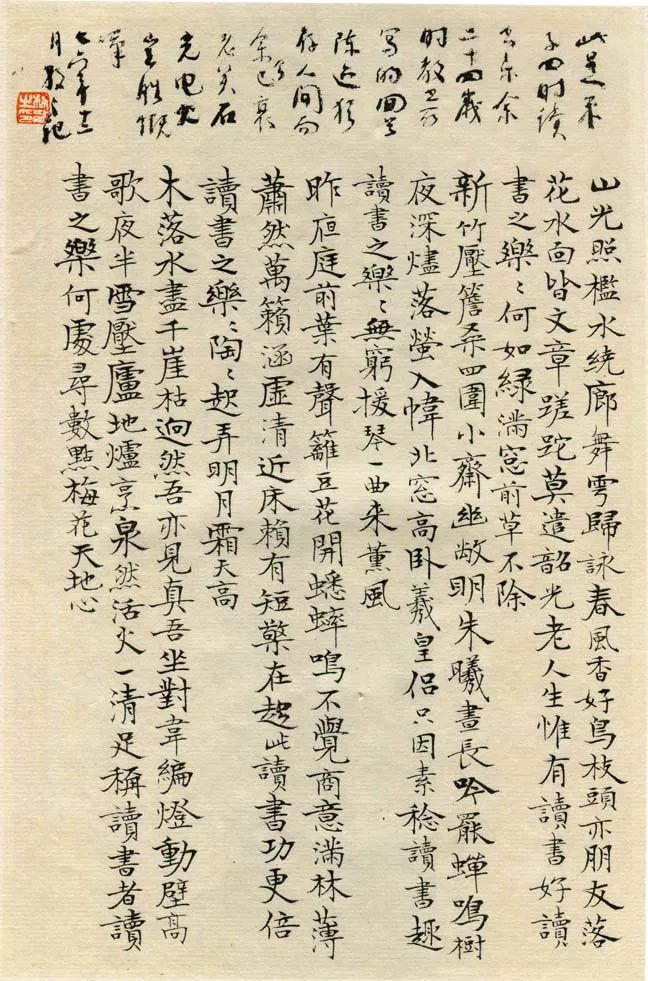 此是朱
子四时讀
书乐余
二十四歲
时教
写的回首
陈迹犹
存人間而
余已衰
老矣石
光电火
岂胜慨
嘆
七六年十二
月
山光照檻水繞廊舞雩歸詠春風香好鳥枝頭亦朋友落
花水面皆文章蹉跎莫遣韶光老人生惟有讀書好讀
書之樂〻何如綠滿窓前草不除
新竹壓簷桑四圍小齋幽敞明朱曦晝長吟罷蟬鳴樹
夜深燼落螢入幃北窓高卧羲皇侶只因素稔讀書趣
讀書之樂〻無窮援琴一曲来薰風
昨夜庭前葉有聲籬豆花開蟋蟀鳴不覺商意滿林薄
蕭然萬籟涵虛清近床賴有短檠在趁此讀書功更倍
讀書之樂〻陶〻起弄明月霜天高
木落水盡千崖枯迥然吾亦見真吾坐對韋編燈動壁高
歌夜半雪壓廬地爐烹泉然活火一清足稱讀書者讀
書之樂何處尋數點梅花天地心